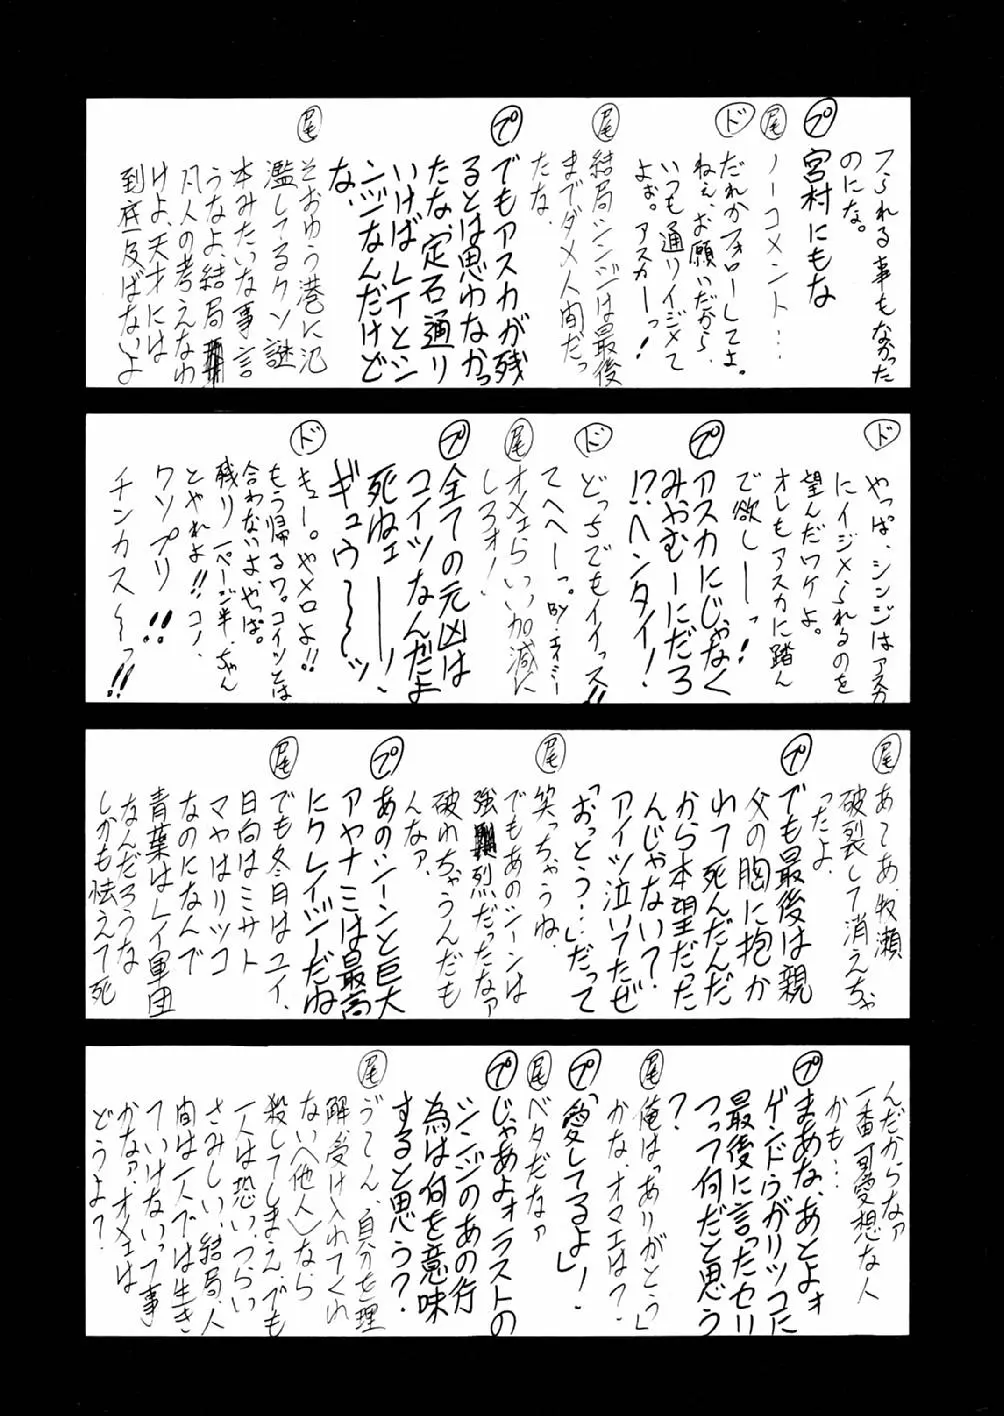 フられる事もなかった
のにな。
プ
宮村にもな
尾
ノーコメント…
ド
だれかフォローしてよ。
ねぇ、お願いだから、
いつも通りイジメて
よぉ。アスカーっ!
尾
結局シンジは最後
までダメ人間だっ
たな。
プ
でもアスカが残
るとは思わなかっ
たな、定石通り
いけばレイとシ
ンジなんだけど
な。
尾
そおゆう港に氾
濫してるクソ謎
本みたいな事言
うなよ、結局
凡人の考えなわ
けよ、天才には
到底及ばないよ
ド
やっぱ、シンジはアスカ
にイジメられるのを
望んだワケよ。
オレもアスカに踏ん
で欲しーっ!
プ
アスカにじゃなく
みやむーにだろ
!?ヘンタイ!
ド
どっちでもイイっス!!
てへへーっ。BY.エイジー
尾
オメェらいい加減に
しろォ!
プ
全ての元凶は
コイツなんだよ
死ねェーーッ!
ギュウ〜〜〜ッ
ド
キュー。やメロよ!!
もう帰るワ。コイツとは
合わないよ、やっぱ。
残り一ページ半、ちゃん
とやれよ!!コノ、
クソプリ!!
チンカス〜〜っ!!
尾
あてあ、牧瀬
破裂して消えちゃ
ったよ。
プ
でも最後は親
父の胸に抱か
れて死んだんだ
から本望だった
んじゃない?
アイツ泣いてたぜ
「おっとう…」だって
尾
笑っちゃうね、
でもあのシーンは
強烈だったなァ
破れちゃうんだも
んなァ、
プ
あのシーンと巨大
アヤナミは最高
にクレイジーだね
尾
でも冬月はユイ、
日向はミサト
マヤはリツコ
なのになんで
青葉はレイ軍団
なんだろうな
しかも怯えて死
んだからなァ
一番可愛想な人
かも…
プ
まあな、あとよォ
ゲンドウがリツコに
最後に言ったセリ
フって何だと思う
?
尾
俺は「ありがとう」
かな、オマエは?
プ
「愛してるよ!」
尾
ベタだなァ
プ
じゃあよォラストの
シンジのあの行
為は何を意味
すると思う?
尾
うてん、自分を理
解受け入れてくれ
ない〈他人〉なら
殺してしまえ、でも
一人は恐い、つらい
さみしい、結局、人
間は一人では生き
ていけないって事
かなァ、オメェは
どうよ?